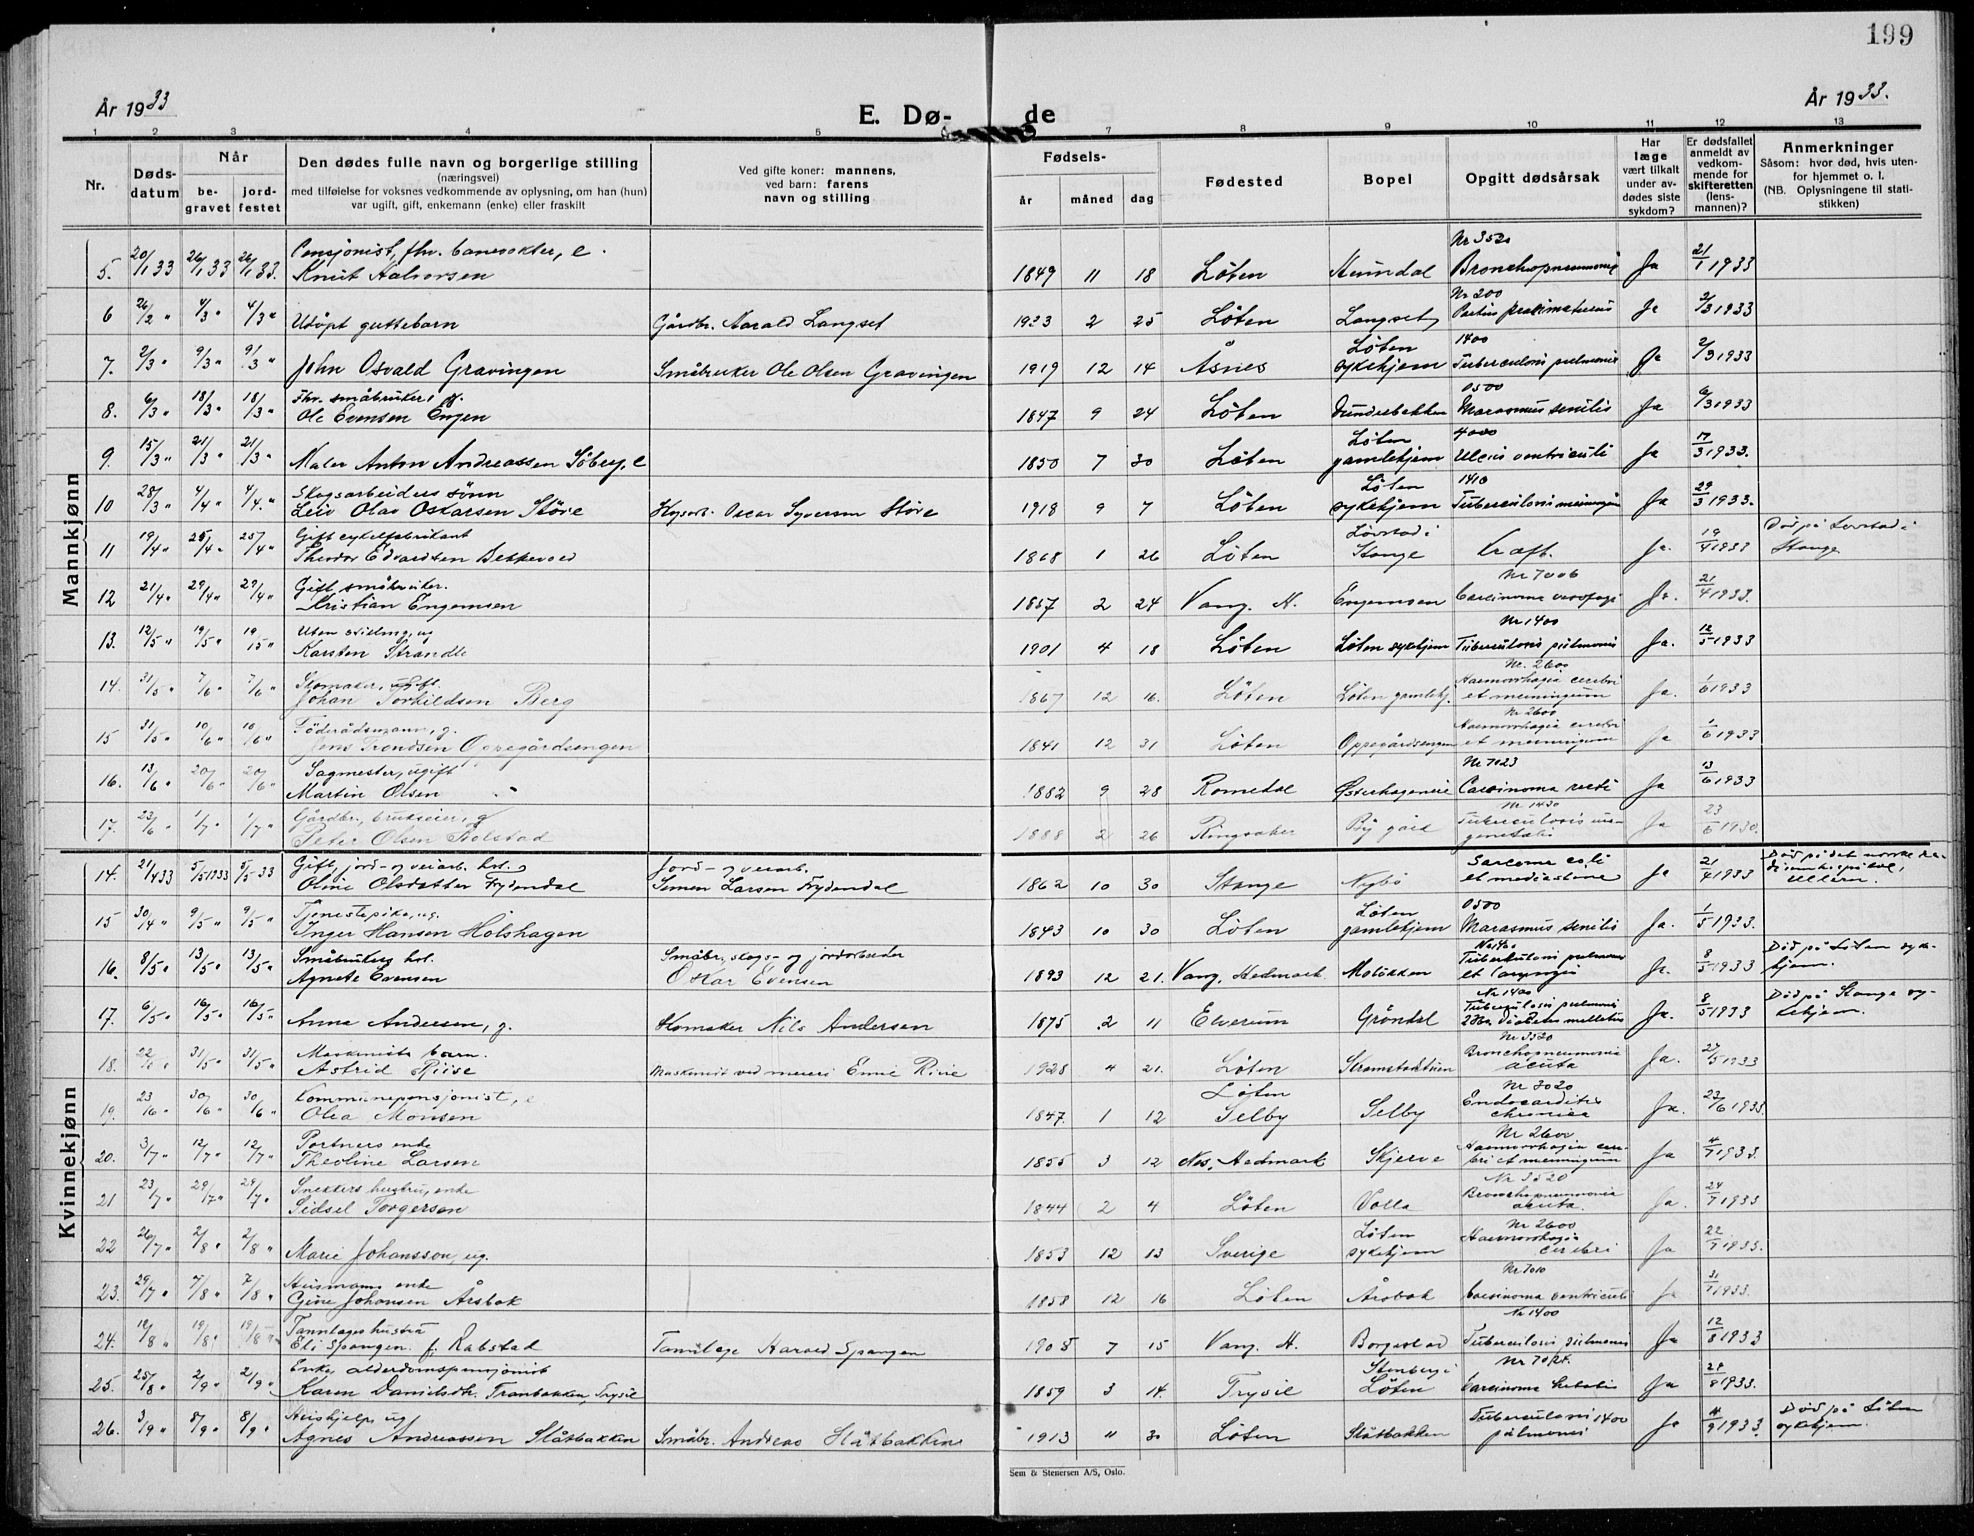 199
År 1933
E. Dø-
de
År 1933.
1 2 3 4 5 7 8 9 10 11 12 13
Nr.
Døds-
datum
Når
be-
gravet
jord-
festet
Den dødes fulle navn og borgerlige stilling
(næringsvei)
med tilføielse for voksnes vedkommende av oplysning, om han (hun)
var ugift, gift, enkemann (enke) eller fraskilt
Ved gifte koner: mannens,
ved barn: farens
navn og stilling
Fødsels-
år måned dag
Fødested
Bopel
Opgitt dødsårsak
Har
læge
vært tilkalt
under av-
dødes siste
sykdom?
Er dødsfallet
anmeldt av
vedkom-
mende for
skifteretten
(lens-
mannen)?
Anmerkninger
Såsom: hvor død, hvis uten-
for hjemmet o. l.
(NB. Oplysningene til stati-
stikken)
Mannkjønn
5. 20/1 33 26/1 33 26/1 33. Pensjonist, fhv. banevokter, e.
Knut Halvorsen 1849 11 18 Løten Nr 3520 Bronchopneumonia Ja 21/1 1933
6 26/2 " 4/3 " 4/3 " Udøpt guttebarn Gårdbr. Harald Langset 1933 2 25 Løten Langset Nr 200 Partus Ja 2/3 1933
7. 2/3 " 9/3 " 9/3 " John Osvald Gravingen Småbruker Ole Olsen Gravingen 1919 12 14 Åsnes Løten sykehjem 1400 Tuberculosis pulmonis Ja 2/3 1933
8. 6/3 " 18/3 " 18/3 " Fhv. småbruker, g.
Ole Evensen Engen 1847 9 24 Løten 0500 Marasmus senilis Ja 6/3 1933
9. 15/3 " 21/3 " 21/3 " Maler Anton Andreassen Söberg, e 1850 7 30 Løten Løten gamlehjem 4000 Ulcus ventriculi Ja 17/3 1933.
10 28/3 " 4/4 " 4/4 " Skogsarbeiders sønn
Leiv Olav Oskarsen Støve Skogsarb. Oscar Syversen Støve 1918 9 7 Løten Løten sykehjem 1410 Tuberculosis meninges Ja 29/3 1933.
11 19/4 " 25/4 " 25/4 " Gift cykelfabrikant
Theodor Edvardsen Bekkevold 1868 1 26 Løten Løvstad i Stange Kræft. Ja. 19/4 1933 Død på Lovstad i
Stange
12 21/4 " 29/4 " 29/4 " Gift småbruker.
Kristian Engemoen 1857 2 24 Vang. H. Engemoen Nr 7006 Carcinoma oesofagi Ja. 21/4 1933.
13. 12/5 " 19/5 " 19/5 " Uten stilling, ug
Karsten Strandli 1901 4 18 Løten Løten sykehjem Nr 1400 Tuberculosis pulmonis Ja. 12/5 1933
14. 31/5 " 7/6 " 7/6 " Skomaker, ugift.
Johan Torkildsen Berg 1867 12 16. Løten Løten gamlehj. Nr. 2600 Haemorrhagia cerebri
et meningum Ja. 1/6 1933
15 31/5 " 10/6 " 10/6 " Föderådsmann, g.
Jens Trondsen Oppegårdsengen 1841 12 31 Løten Oppegårdsengen Nr 2600 Haemorrhagia cerebri
et meningum Ja 1/6 1933
16. 13/6 " 20/6 " 20/6 " Sagmester, ugift
Martin Olsen 1882 9 28 Romedal Østerhageneie Nr 7023 Carcinoma recti Ja 13/6 1933
17. 23/6 " 1/7 " 1/7 " Gårdbr., brukseier, g
Peter Olsen 1888 2 26 Ringsaker By gård Nr 1430 Tuberculosis uro-
genitalis Ja 23/6 1930.
Kvinnekjønn
14. 21/4 33 5/5 1933 5/5 33 Gift, jord- og veiarb. hst.
Oline Olsdatter Frydendal Jord- og veiarb.
Simen Larsen Frydendal 1862 10 30 Stange Nybö Sarcoma coli
et mediastine Ja 21/4 1933 Død på det norske ra-
diumhospital,
Ullern.
15 30/4 " 9/5 " 9/5 " Tjenestepike, ug.
Inger Hansen Holshagen 1843 10 30 Løten Løten gamlehjem 0500 Marasmus senilis Ja. 1/5 1933.
16. 8/5 " 13/5 " 13/5 " Småbrukers hst.
Agnete Evensen Småbr., skogs- og jordarbeider
Oskar Evensen 1893 12 21. Vang, Hedmark Nr 1400 Tuberkulosis pulmonis
et laryngis Ja. 8/5 1933 Død på Løten syke-
hjem.
17. 6/5 " 16/5 " 16/5 " Anna Andersen, g. Skomaker Nils Andersen 1875 2 11 Elverum Gröndal Nr 1400
Tuberculosis pulmonis
Diabetes mellitus Ja. 8/5 1933 Død på Stange sy-
kehjem.
18. 22/5 " 31/5 " 31/5 " Maskinists barn.
Astrid Riise Maskinist ved meieri Riise 1928 4 21. Løten Nr 3520
Bronchopneumonia
acuta Ja. 27/5 1933
19. 23/6 " 30/6 " 30/6 " Kommunepensjonist, e
Olea Monsen 1847. 1 12 Løten
Selby Selby Nr 3020
Endocarditis
chronica Ja. 23/6 1933
20. 3/7 " 12/7 " 12/7 " Portners enke
Theoline Larsen 1855 3 12 Nes, Hedmark Skjerve Nr 2600
Haemorrhagia cere-
bri et meningum Ja 4/7 1933.
21 23/7 " 29/7 " 29/7 " Snekkers hustru, enke
Sidsel Torgersen 1844 2 4 Løten Volla Nr 3520
Bronchopneumonia
acuta. Ja. 24/7 1933
22 26/7 " 2/8 " 2/8 " Marie Johansson, ug. 1853 12 13 Sverige Løten sykehjem Nr 2600
Haemorrhagia
cerebri Ja 22/7 1933.
23. 29/7 " 7/8 " 7/8 " Husmanns enke
Gine Johansen Årsbak 1858 12 16 Løten Årsbak Nr 7010
Carcinoma ventriculi Ja 31/7 1933.
24. 12/8 " 19/8 " 19/8 " Tannlæges hustru
Eli Spangen f. Rabstad Tannlæge Harald Spangen 1908 7 15 Vang. H. Borgestad Nr 1400
Tuberculosis pulmonis Ja 12/8 1933
25. 25/8 " 2/9 " 2/9 " Enke, alderdomspensjonist
Karen Danielsdtr. Tranbakken, Trysil 1859 3 14. Trysil Stenberg i
Løten Carcinoma hepatis Ja 28/8 1933.
26. 3/9 " 8/9 " 8/9 " Hushjelp, ug
Agnes Andreassen Slåtbakken Småbr. Andreas Slåtbakken 1913 11 30 Løten Slåtbakken Tuberculosis 1400
pulmonis Ja 4/9 1933. Død på Løten
sykehjem.
Sem & Stenersen A/S, Oslo.